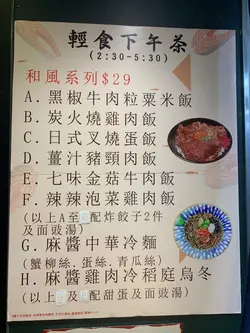 輕食下午茶
(2:30-5:30)
和風系列$29
A.黑椒牛肉粒粟米飯
B.炭火燒雞肉飯
C.日式叉燒蛋飯
D.薑汁豬頸肉飯
E.七味金菇牛肉飯
F.辣辣泡菜雞肉飯
(以上A至 配炸餃子2件
及面豉湯)
G.麻醬中華冷麵
(蟹柳絲.蛋絲.青瓜絲)
H.麻醬雞肉冷稻庭烏冬
(以上 及 配甜蛋及面豉湯)